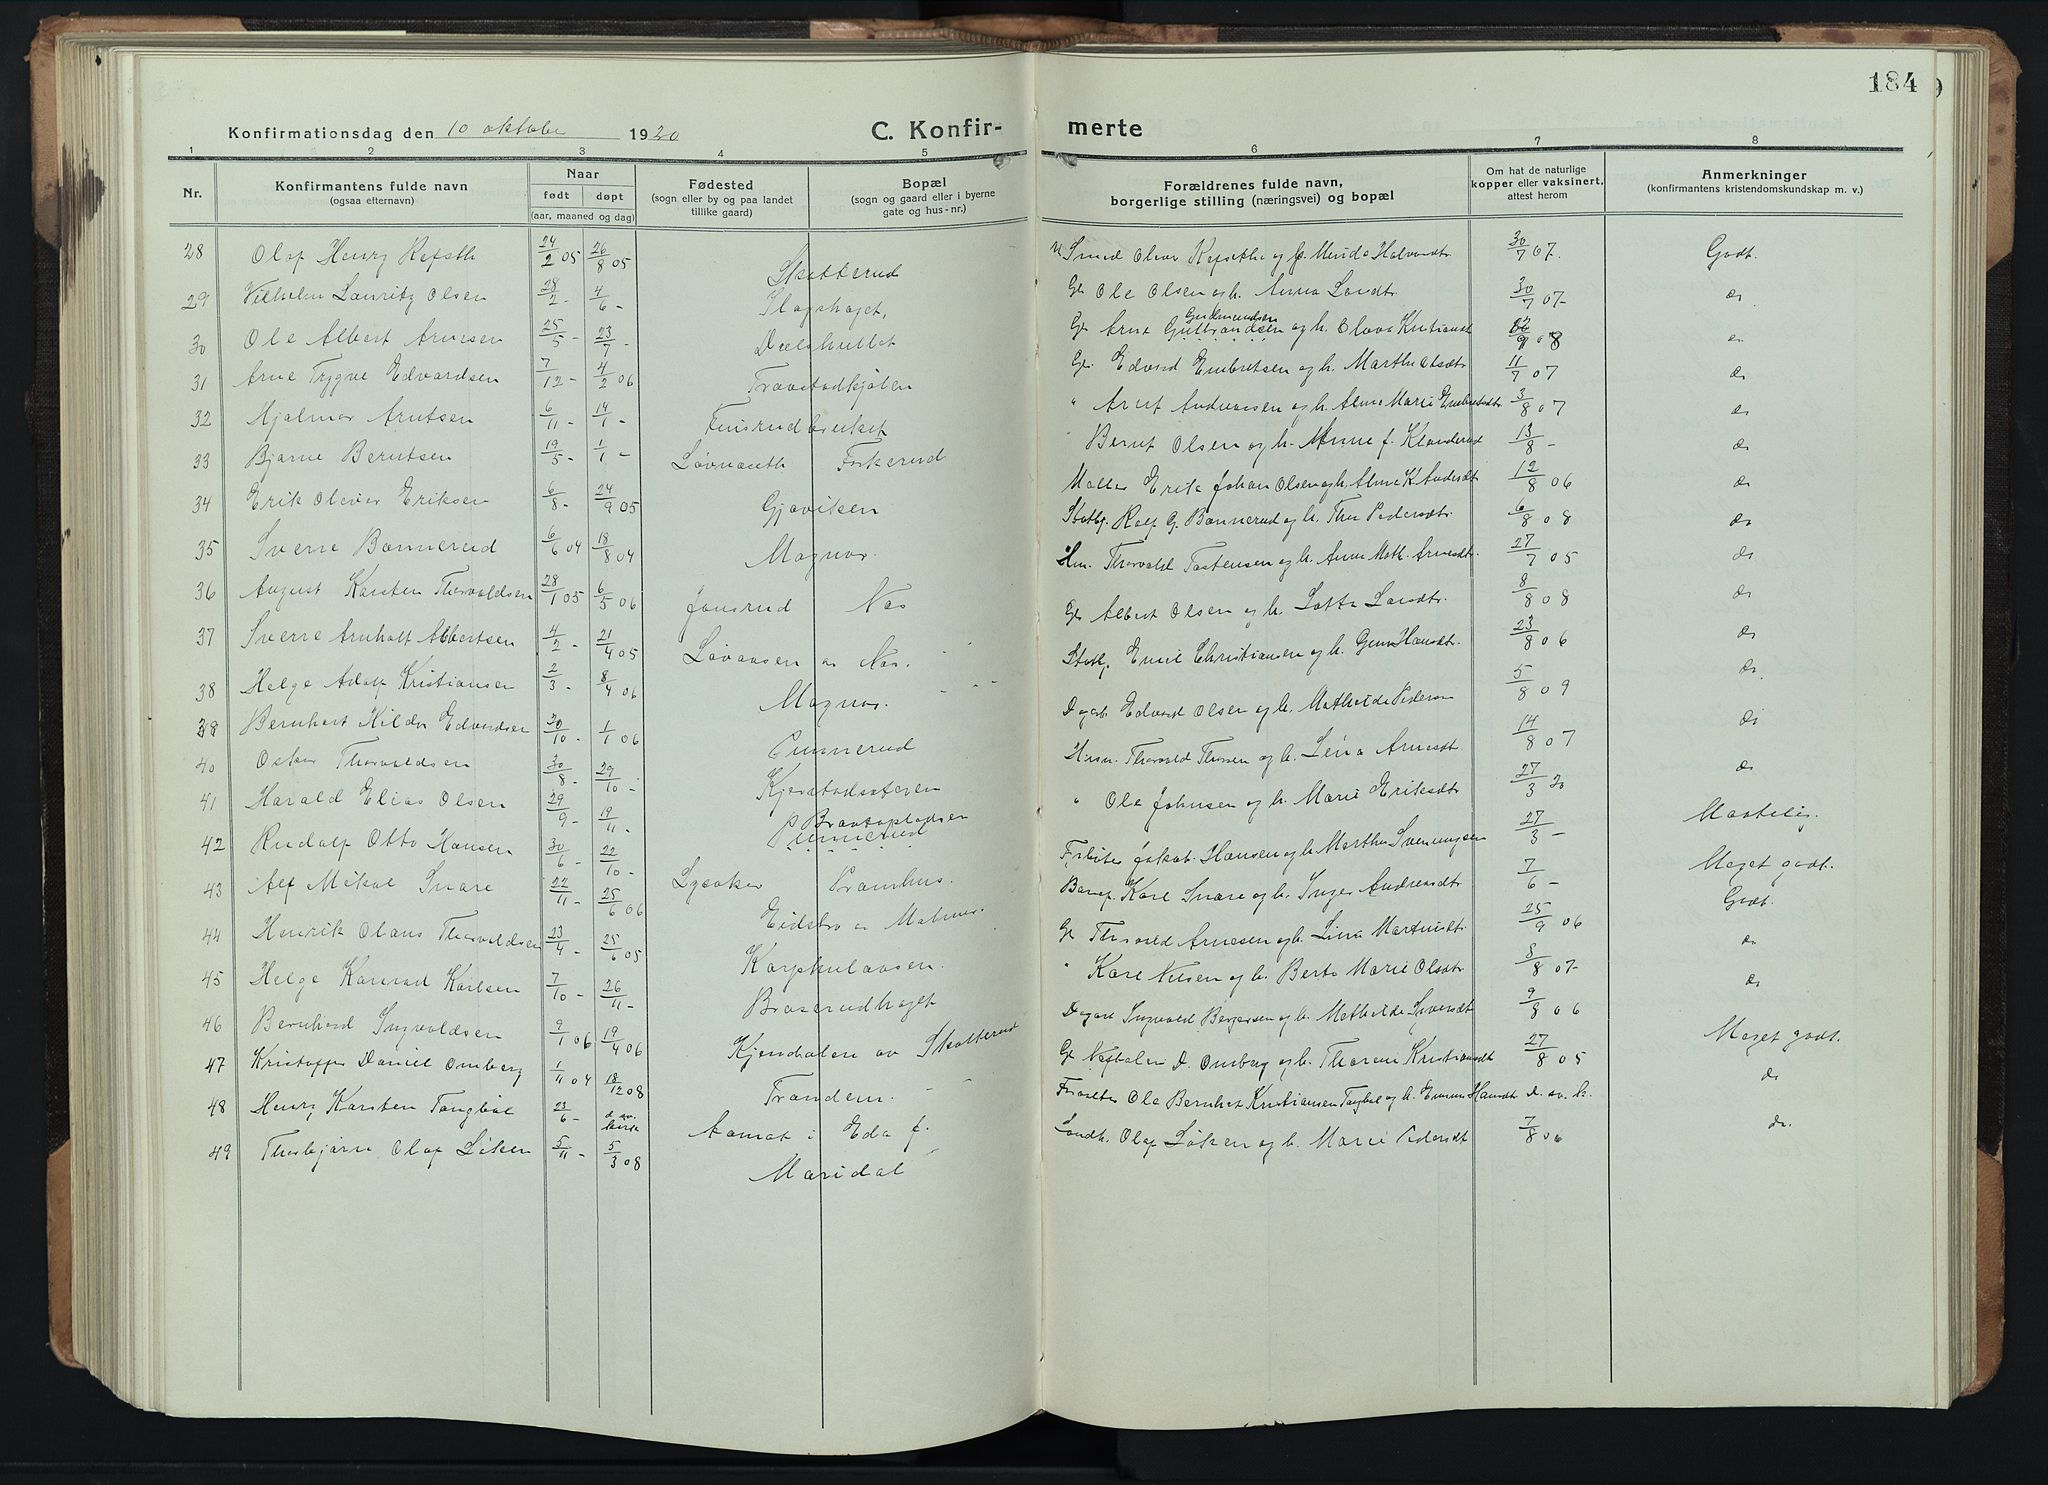 184
Konfirmationsdag den 10 oktober 1920 C. Konfir- merte
1 2 3 4 5 6 7 8
Nr. Konfirmantens fulde navn (ogsaa efternavn) Naar født døpt (aar, maaned og dag) Fødested (sogn eller by og paa landet tillike gaard) Bopæl (sogn og gaard eller i byerne gate og hus-nr.) Forældrenes fulde navn, borgerlige stilling (næringsvei) og bopæl Om hat de naturlige kopper eller vaksinert, attest herom Anmerkninger (konfirmantens kristendomskundskap m. v.)
28 Olaf Henry Refseth 24/2 05 26/8 05 Skotterud Smed Oliver Refseth og h. Halvorsdtr. 30/7 07. Godt.
29 Vilhelm Lauritz Olsen 28/2 - 4/6 - Slagshaget, Ole Olsen og h. Anna Larsdtr. 30/7 07- do
30 Ole Albert Arnesen 25/5 - 23/7 - Arne Gulbrandsen Gudmundsen og h. Olava Kristiansdtr 08 do
31 Arne Trygve Edvardsen 7/12 - 4/2 06 Edvard Embretsen og h. Marthe Olsdtr 11/7 07 do
32 Hjalmar Arntsen 6/11 - 14/1 - Arnt Andreasen og h. Anne Marie Embretsdtr 3/8 07 do
33 Bjarne Berntsen 19/5 - 1/1 - Forkerud " Bernt Olsen og h. Anne f. Klanderud 13/8 - do
34 Erik Oliver Eriksen 6/8 - 24/9 05 Gjøviksen Møller Erik Johan Olsen og h. Anne K. Andersdtr 12/8 06 do
35 Sverre Bannerud 6/6 04 18/8 04 Magnor. Rolf G. Bannerud og h. Thea Pedersdtr. 6/8 08 do
36 August Karsten Thorvaldsen 28/1 05 6/5 06 Jonsrud Næs Hm. Thorvald Tostensen og h. Anne Math. Arnesdtr. 27/7 05 do
37 Sverre Arnholt Albertsen 4/2 - 21/4 05 Løvaasen v. Næs. Albert Olsen og h. Lotta Larsdtr. 8/8 08 do
38 Helge Adolf Kristiansen 2/3 - 8/4 06 Magnor. Emil Christiansen og h. Gina Hansdtr. 23/8 06 do
39 Bernhart Hildor Edvardsen 20/10 - 1/1 06 Punnerud Dagarb. Edvard Olsen og h. Mathilde Pedersen 5/8 09 do
40 Oskar Thorvaldsen 30/8 - 29/10 - Kjerstadsæteren Thorvald Thoresen og h. Lina Arnesdtr 14/8 07 do
41 Harald Elias Olsen 29/9 - 19/11 - Punnerud Braatapladsen " Ole Johnsen og h. Marie Eriksdtr 27/3 20 do
42 Rudolf Otto Hansen 30/6 - 22/10 - Pramhus. Jakob Hansen og h. Marthe Svenningsen 27/3 - Maatelig.
43 Alf Mikal Snare 22/11 - 25/6 06 Lysaker Eidsbro v. Matrand. Karl Snare og h. Inger Andreasdtr 7/6 - Meget godt.
44 Henrik Olaus Thorvaldsen 23/4 - 25/6 05 Karpkulaasen. Thorvald Arnesen og h. Lina Martinsdtr. 25/9 06 Godt.
45 Helge Konrad Karlsen 7/10 - 26/11 - Braserudhaget " Karl Nilsen og h. Berte Marie Olsdtr 3/8 07- do
46 Bernhard Ingvaldsen 9/1 06 19/4 06 Kjendalen av Skotterud Dagarb. Ingvald Bergersen og h. Mathilde Syversdtr 9/8 06 do
47 Kristoffer Daniel Omberg 1/11 04 18/12 08 Trandem. Neftalen D. Omberg og h. Thorine Kristiansdtr 27/8 05 Meget godt.
48 Henry Karsten Tangbøl 23/6 - d. av. kirke i Eda f. Ole Bernhat Kristiansen Tangbøl og h. Emma Hansdtr d. av. k. do
49 Thorbjørn Olaf Løken 5/11 - 5/3 08 Maridal Landh. Olaf Løken og h. Marie Pedersdtr 7/8 06 do.